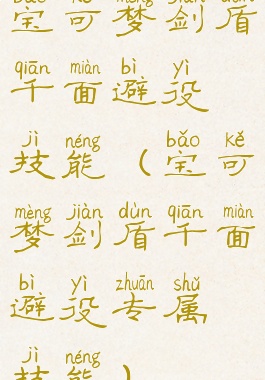 bǎo kě mèng jiàn dùn
宝可梦剑盾
qiān miàn bì yì
千面避役
jì néng bǎo kě
技能（宝可
mèng jiàn dùn qiān miàn
梦剑盾千面
bì yì zhuān shǔ
避役专属
jì néng
技能）